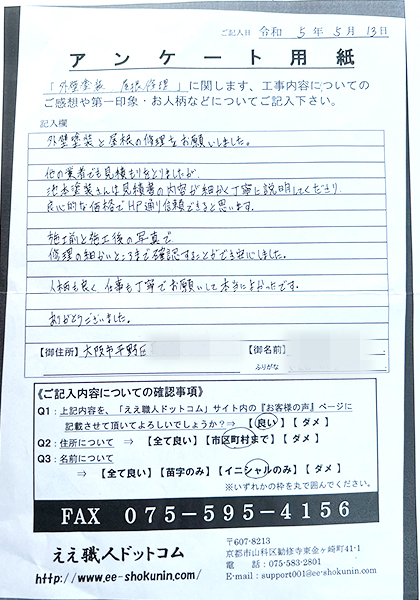 ご記入日 令和 5年 5月 13日
アンケート用紙
「外壁塗装 屋根修理」に関します、工事内容についての
ご感想や第一印象・お人柄などについてご記入下さい。
記入欄
外壁塗装と屋根の修理をお願いしました。
他の業者でも見積もりをとりましたが、
さんは見積書の内容が細かく丁寧に説明してくださり、
良心的な価格でHP通り信頼できると思います。
施工前と施工後の写真で
修理の細かいところまで確認することができ安心しました。
人柄も良く、仕事も丁寧でお願いして本当によかったです。
ありがとうございました。
【御住所】大阪市平野区
【御名前】
ふりがな
《ご記入内容についての確認事項》
Q1：上記内容を、「ええ職人ドットコム」サイト内の『お客様の声』ページに
記載させて頂いてよろしいでしょうか？⇒【良い】【ダメ】
Q2：住所について ⇒【全て良い】【市区町村まで】【ダメ】
Q3：名前について
⇒【全て良い】【苗字のみ】【イニシャルのみ】【ダメ】
※いずれかの枠を丸で囲んでください。
FAX 075-595-4156
ええ職人ドットコム
http://www.ee-shokunin.com/
〒607-8213
京都市山科区勧修寺東金ヶ崎町41-1
電話：075-583-2801
E-mail：support001@ee-shokunin.com